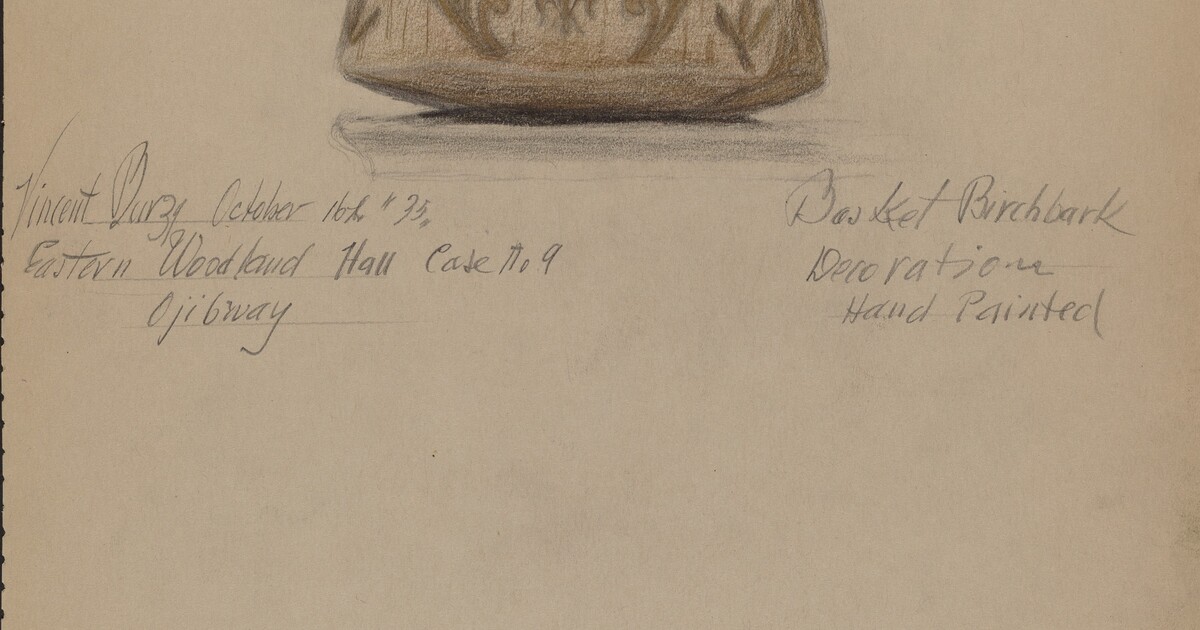 Vincent Burzy October 16th "35„
Eastern Woodland Hall Case No 9
Ojibway
Basket Birchbark
Decorations
Hand Painted